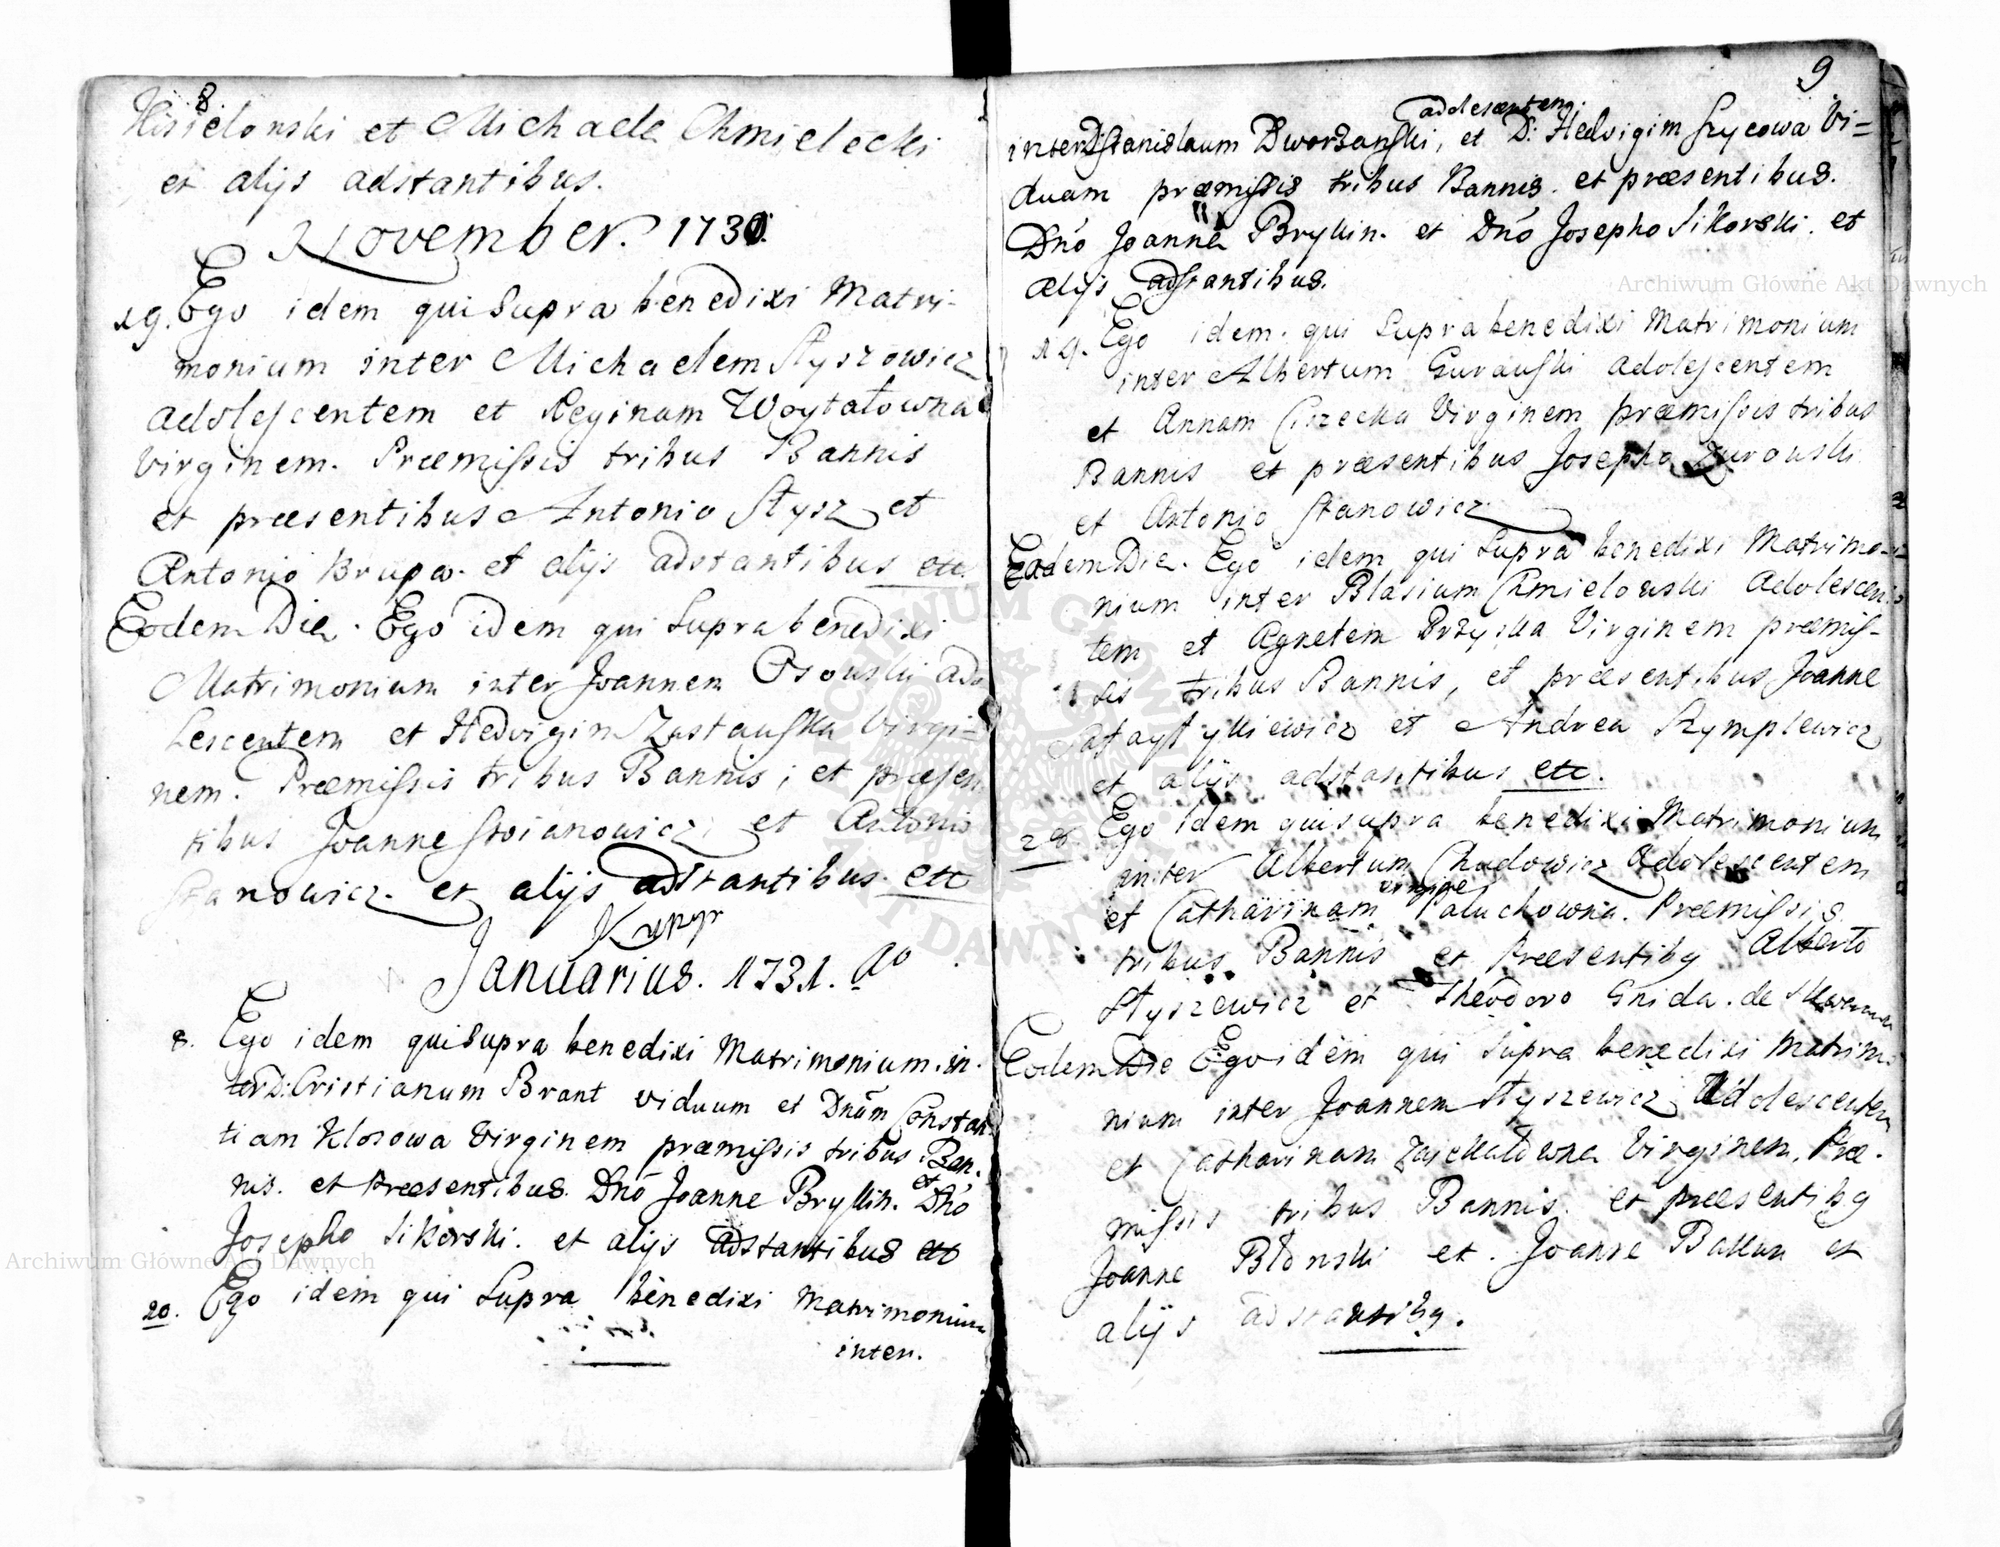 8
Kisielonski et Michaele Chmielecki
et alijs adstantibus.
November. 1730.
19. Ego idem qui Supra benedixi Matri-
monium inter Michaelem Styszowicz
Adolescentem et Reginam Woytatowna
Virginem. Præmissis tribus Bannis
et præsentibus Antonio Stysz et
Antonio Krupa. et alijs adstantibus etc.
Eodem Die. Ego idem qui Supra benedixi
Matrimonium inter Joannem Osouski ado
Lescentem et Hedvigim Zastauska Virgi=
nem. Præmissis tribus Bannis; et præsen
tibus Joanne Stoianowicz, et Antonio
Stanowicz. et alijs adstantibus. etc
Januarius. 1731. Ao
8. Ego idem qui Supra benedixi Matrimonium. in-
ter D: Cristianum Brant viduum et Dnãm Constan
tiam Klosowa Virginem præmissis tribus Ban-
nis. et Præsentibus. Dnõ Joanne Bryllin. et Dnõ
Josepho Sikorski. et alijs adstantibus etc
20. Ego idem qui Supra benedixi Matrimonium
inter.
9
inter D Stanislaum Dworzanski, adolescentem et D: Hedvigim Szycowa Vi=
duam præmissis tribus Bannis. et præsentibus.
Dnõ Joanne Bryllin. et Dnõ Josepho Sikorski. et
alijs adstantibus.
19. Ego idem. qui Supra benedixi Matrimonium
inter Albertum Gurauski adolescentem
et Annam Cirzecka Virginem præmissis tribus
Bannis et præsentibus Josepho Zurouski
et Antonio Stanowicz
Eadem Die. Ego idem qui Supra benedixi Matrimo-
nium inter Blasium Chmielouski Adolescen
tem et Agnetem Brzyska Virginem præmis-
sis tribus Bannis, et præsentibus Joanne
et Andrea Szymplewicz
et alijs adstantibus etc.
28 Ego idem qui supra benedixi Matrimonium
inter Albertum Chudowicz Adolescentem
et Catharinam virginem Paluchowna. Præmissis
tribus Bannis et Præsentibq Alberto
Styszewicz et Theodoro Gnida. de
Eodem Die Ego idem qui Supra benedixi Matrim
nium inter Joannem Styszewicz Adolescentem
et Catharinam Zajckatowna Virginem, Præ-
missis tribus Bannis. et præsentibq
Joanne Blonski et. Joanne Bakun et
alijs adstantibq.
Archiwum Główne Akt Dawnych
Archiwum Główne Akt Dawnych
ARCHIWUM GŁÓWNE AKT DAWNYCH